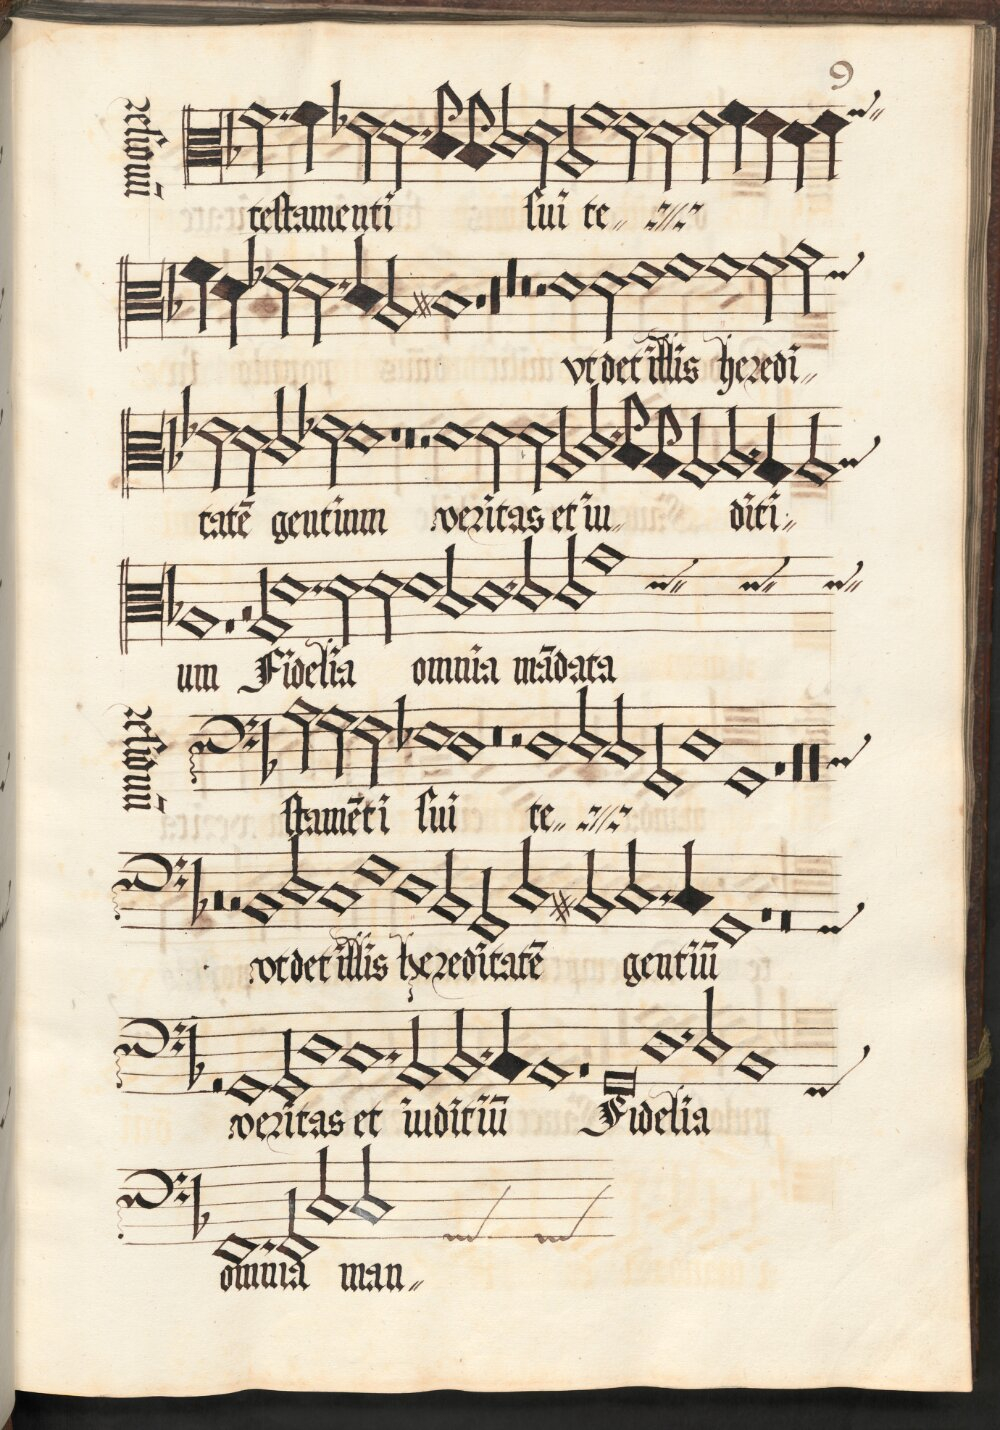 9
residuum
testamenti sui te〃 ij
vt det illis heredi〃
tatē gentium veritas et iu〃 diti〃
um Fidelia omnia mādata
residuum
stamēti sui te〃 ij
vt det illis hereditatē gentiū
veritas et iuditiū Fidelia
omnia man〃